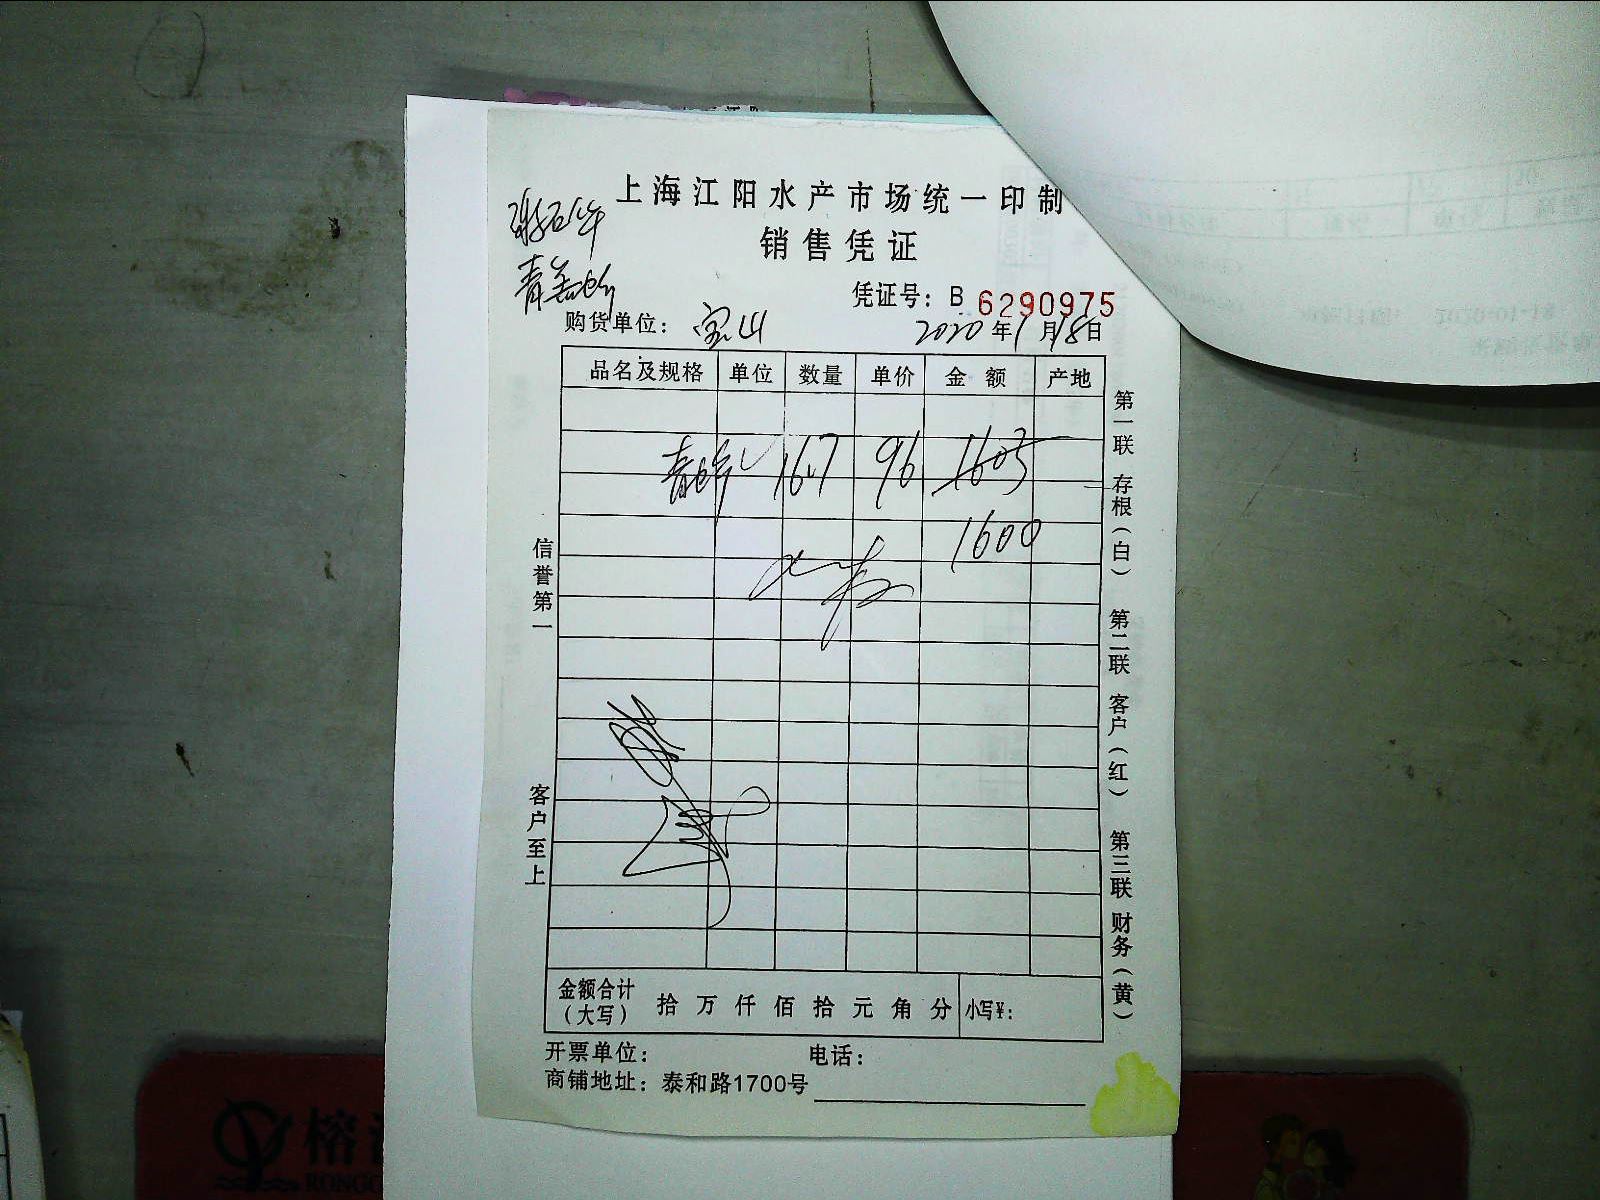 上海江阳水产市场统一印制
销售凭证
凭证号：B 6290975
购货单位：宝山 2020年1月18日
品名及规格 单位 数量 单价 金额 产地
16.7 96 1603
1600
信誉第一
客户至上
第一联 存根（白） 第二联 客户（红） 第三联 财务（黄）
金额合计（大写） 拾万仟佰拾元角分 小写¥：
开票单位： 电话：
商铺地址：泰和路1700号
榕
RONGC